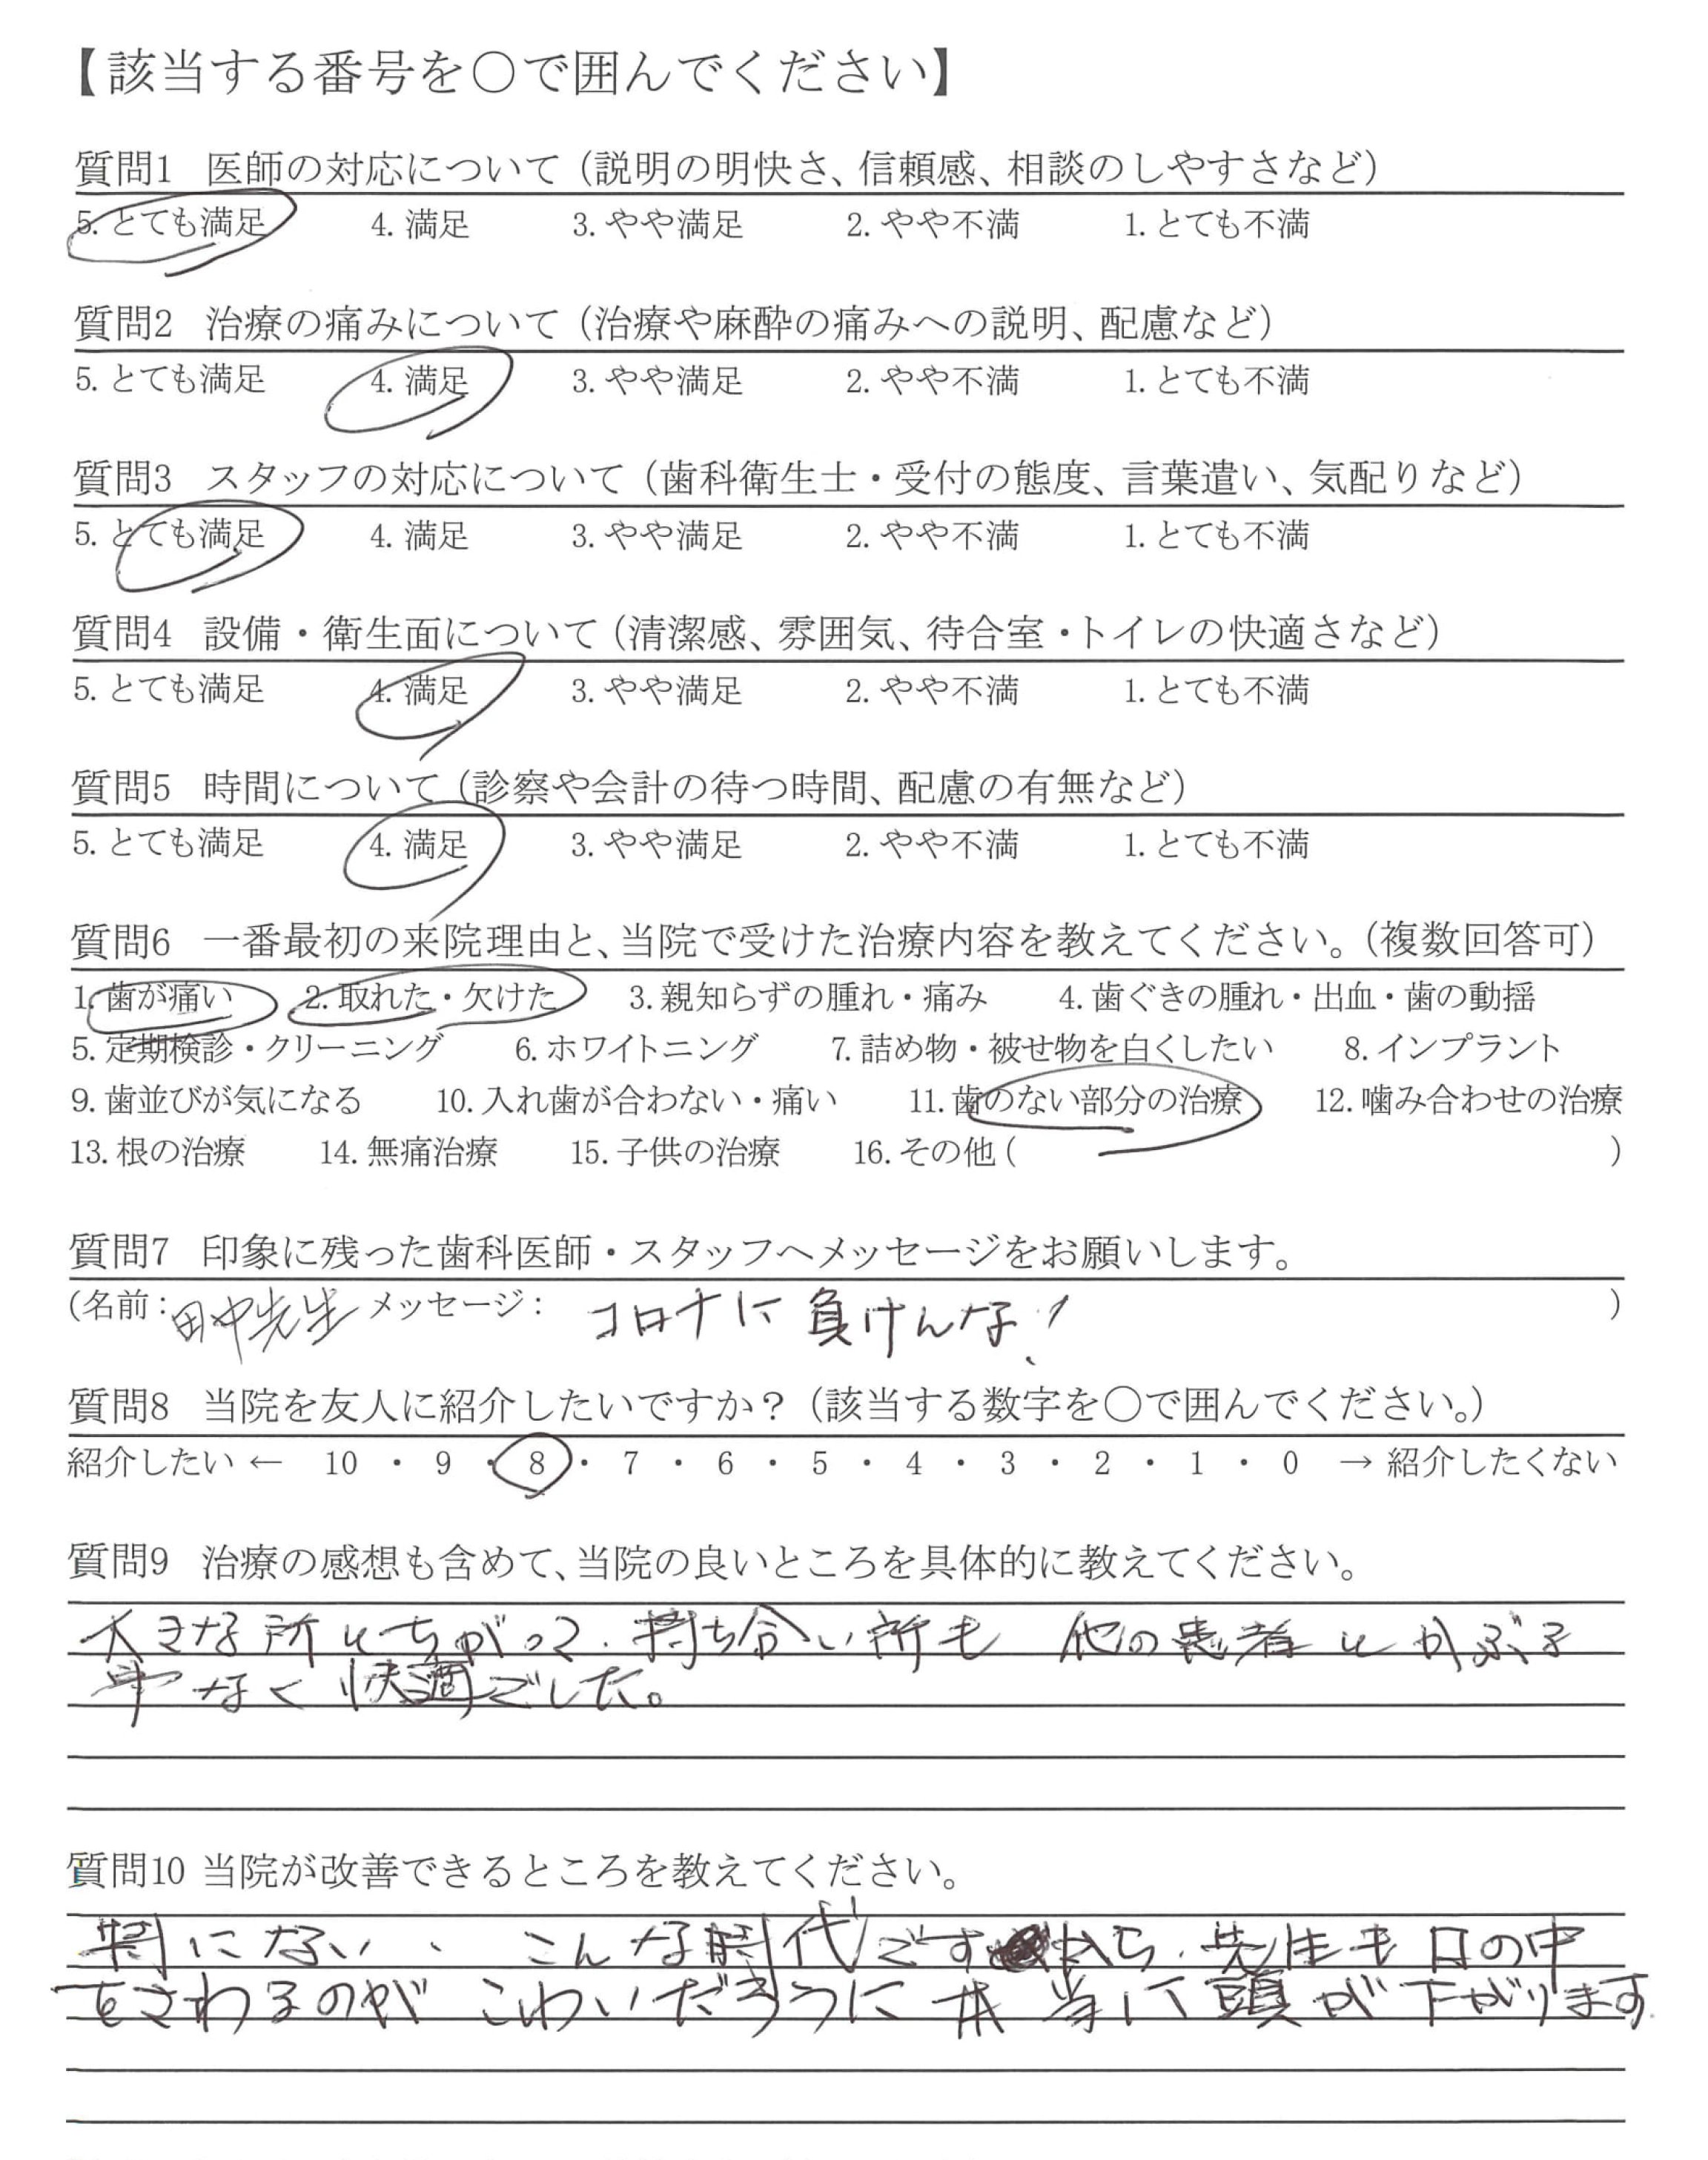 【該当する番号を○で囲んでください】
質問1 医師の対応について（説明の明快さ、信頼感、相談のしやすさなど）
5. とても満足 4. 満足 3. やや満足 2. やや不満 1. とても不満
質問2 治療の痛みについて（治療や麻酔の痛みへの説明、配慮など）
5. とても満足 4. 満足 3. やや満足 2. やや不満 1. とても不満
質問3 スタッフの対応について（歯科衛生士・受付の態度、言葉遣い、気配りなど）
5. とても満足 4. 満足 3. やや満足 2. やや不満 1. とても不満
質問4 設備・衛生面について（清潔感、雰囲気、待合室・トイレの快適さなど）
5. とても満足 4. 満足 3. やや満足 2. やや不満 1. とても不満
質問5 時間について（診察や会計の待つ時間、配慮の有無など）
5. とても満足 4. 満足 3. やや満足 2. やや不満 1. とても不満
質問6 一番最初の来院理由と、当院で受けた治療内容を教えてください。（複数回答可）
1. 歯が痛い 2. 取れた・欠けた 3. 親知らずの腫れ・痛み 4. 歯ぐきの腫れ・出血・歯の動揺
5. 定期検診・クリーニング 6. ホワイトニング 7. 詰め物・被せ物を白くしたい 8. インプラント
9. 歯並びが気になる 10. 入れ歯が合わない・痛い 11. 歯のない部分の治療 12. 噛み合わせの治療
13. 根の治療 14. 無痛治療 15. 子供の治療 16. その他（ ）
質問7 印象に残った歯科医師・スタッフへメッセージをお願いします。
（名前：田中先生 メッセージ： コロナに負けんな！ ）
質問8 当院を友人に紹介したいですか？（該当する数字を○で囲んでください。）
紹介したい ← 10 ・ 9 ・ 8 ・ 7 ・ 6 ・ 5 ・ 4 ・ 3 ・ 2 ・ 1 ・ 0 → 紹介したくない
質問9 治療の感想も含めて、当院の良いところを具体的に教えてください。
大きな所とちがって、持ち合い所も 他の患者とかぶる
事なく快適でした。
質問10 当院が改善できるところを教えてください。
特にない、こんな時代ですから、先生も口の中
をさわるのが こわいだろうに 本当に頭が下がります.